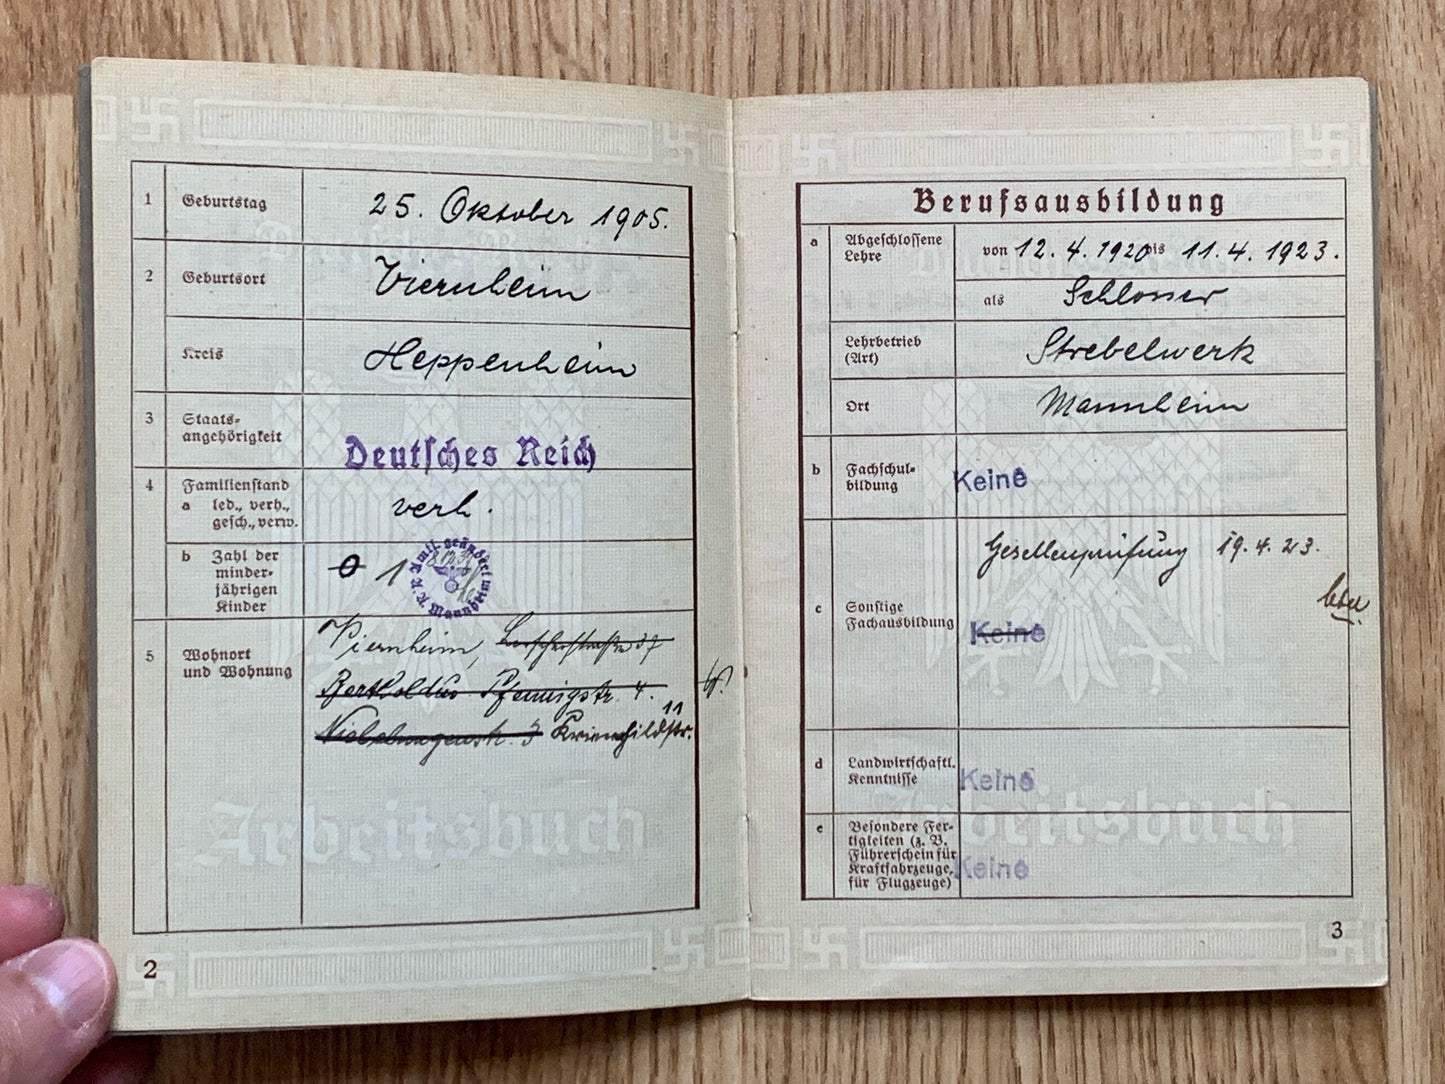 1 Geburtstag 25. Oktober 1905.
2 Geburtsort Viernheim
Kreis Heppenheim
3 Staats-
angehörigkeit Deutsches Reich
4 Familienstand
a led., verh., verh.
gesch., verw.
b Zahl der
minder-
jährigen
Kinder 0 1
Amtl. geändert
A. A. Mannheim
5 Wohnort
und Wohnung Viernheim,
Bertholdus Pfennigstr. 4.
Niebelungenstr. 3 Kriemhildstr. 11
Arbeitsbuch
2
Berufsausbildung
a Abgeschlossene
Lehre von 12. 4. 1920 bis 11. 4. 1923.
als Schlosser
Lehrbetrieb
(Art) Strebelwerk
Ort Mannheim
b Fachschul-
bildung Keine
Gesellenprüfung 19. 4. 23.
c Sonstige
Fachausbildung Keine
d Landwirtschaftl.
Kenntnisse Keine
e Besondere Fer-
tigkeiten (z. B.
Führerschein für
Kraftfahrzeuge,
für Flugzeuge) Keine
Arbeitsbuch
3